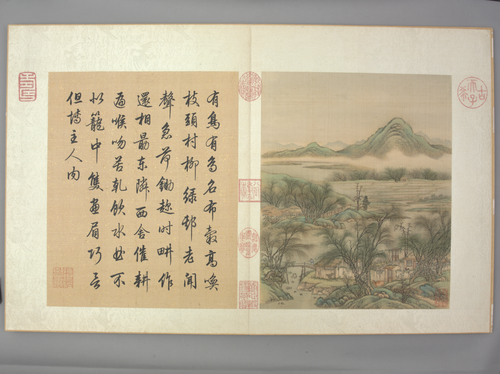 有鳥有鳥名布穀高喚
枝頭村柳綠邨老聞
聲急荷鋤趂時畊作
還相勗東隣西舍催耕
遍喉吻苦乾飲水不
似籠中雙畫眉巧言
但博主人肉